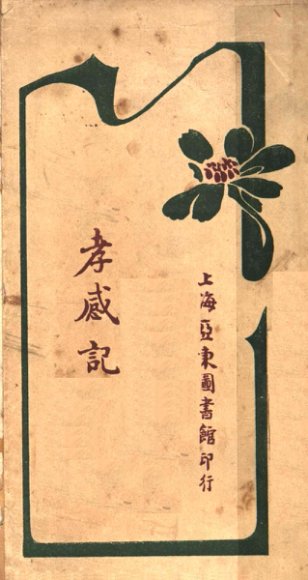 上海亞東圖書館印行
孝感記